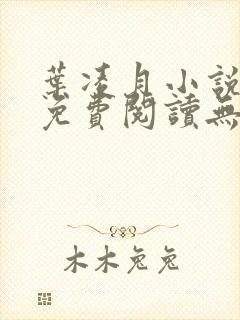 葉凌月小說
免費閱讀無
木木兔兔